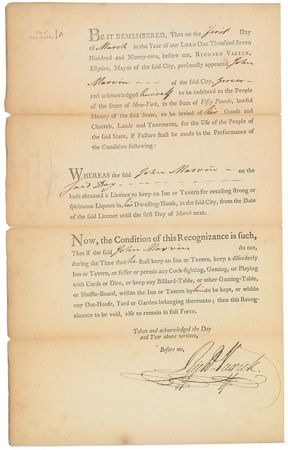 BE IT REMEMBERED, That on the first Day
of March in the Year of our LORD One Thousand Seven
Hundred and Ninety-two, before me, RICHARD VARICK,
Esquire, Mayor of the said City, personally appeared John
Marvin - - - of the said City, Grocer -
and acknowledged himself to be indebted to the People
of the State of New-York, in the Sum of Fifty Pounds, lawful
Money of the said State, to be levied of his Goods and
Chattels, Lands and Tenements, for the Use of the People of
the said State, if Failure shall be made in the Performance of the
Condition following:
WHEREAS the said John Marvin - on the
said Day - - - - - -
hath obtained a Licence to keep an Inn or Tavern for retailing strong or
spirituous Liquors in his Dwelling-House, in the said City, from the Date
of the said Licence until the first Day of March next.
Now, the Condition of this Recognizance is such,
That if the said John Marvin do not,
during the Time that he shall keep an Inn or Tavern, keep a disorderly
Inn or Tavern, or suffer or permit any Cock-fighting, Gaming, or Playing
with Cards or Dice, or keep any Billiard-Table, or other Gaming-Table,
or Shuffle-Board, within the Inn or Tavern by him to be kept, or within
any Out-House, Yard or Garden belonging thereunto; then this Recog-
nizance to be void, else to remain in full Force.
Taken and acknowledged the Day
and Year above written,
Before me,
Richd. Varick